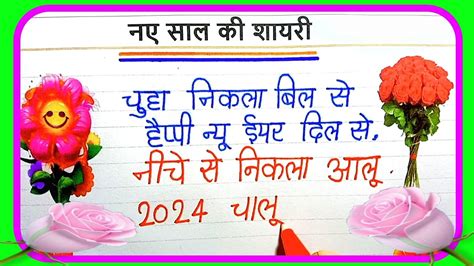 नए साल की शायरी
चुहा निकला बिल से
हैप्पी न्यू ईयर दिल से,
नीचे से निकला आलू
2024 चालू